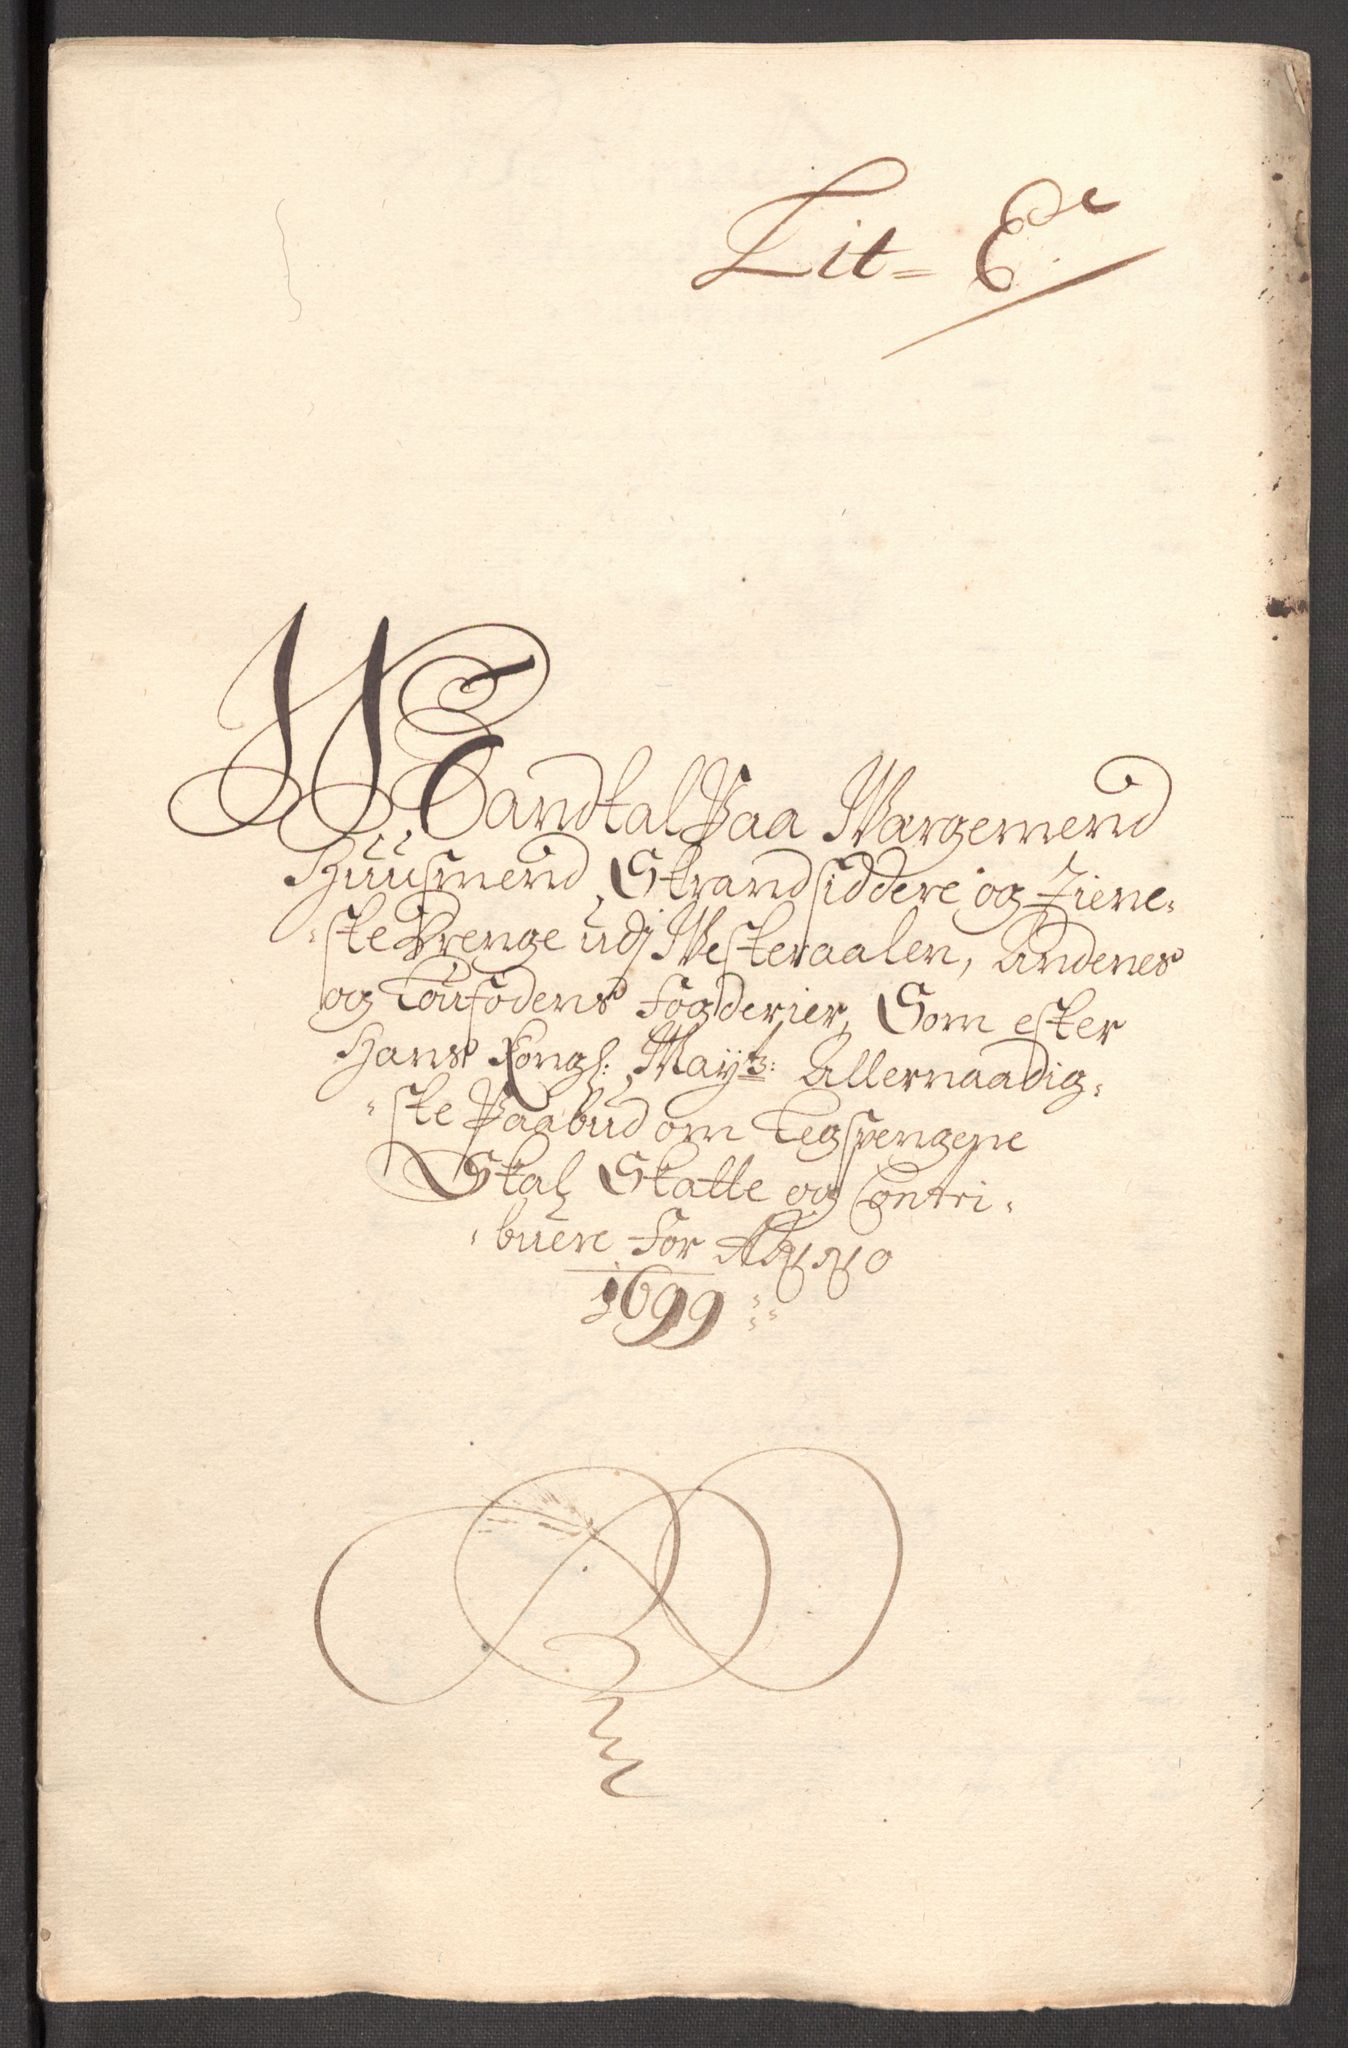 Lit= E
Mandtal Paa Wargemend
Huusmend, Strandsiddere og Tiene=
=ste Drenge udj Westeraalen, Andenes
og Loufodens Fogderier, Som efter
Hans Kongl: Mayts: Allernaadig=
=ste Paabud om Legspengene
Skal Skatte og Contri=
=buere For Anno
1699